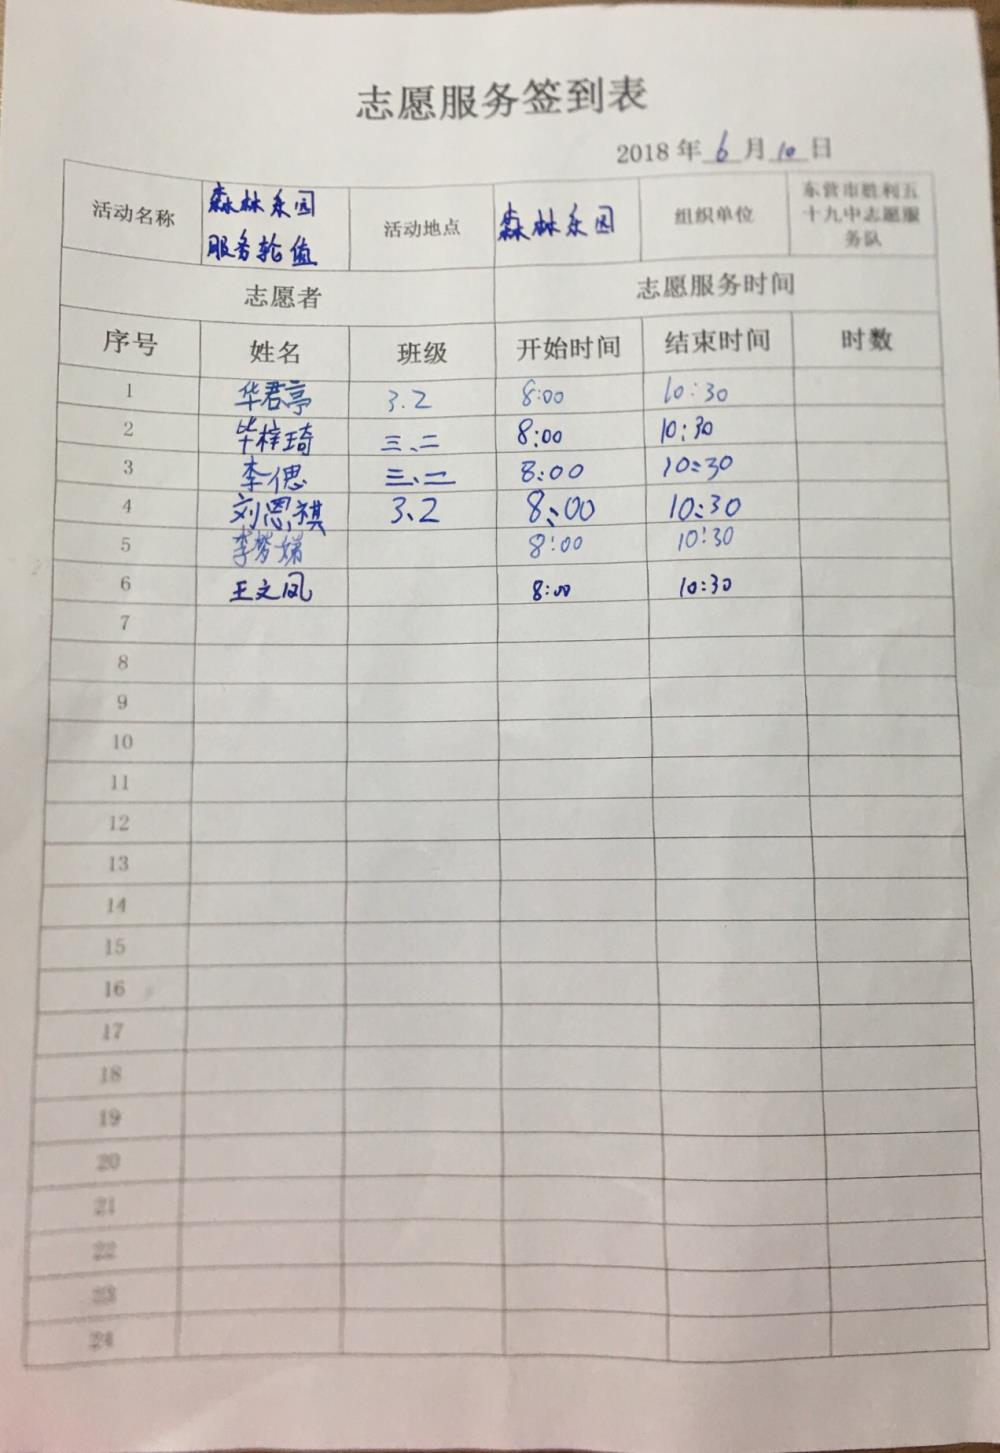 志愿服务签到表
2018 年 6 月 10 日
活动名称 森林乐园 服务轮值 活动地点 森林乐园 组织单位 东营市胜利五十九中志愿服务队
志愿者 志愿服务时间
序号 姓名 班级 开始时间 结束时间 时数
1 华君亭 3.2 8:00 10:30
2 毕梓琦 三、二 8:00 10:30
3 李偲 三、二 8:00 10:30
4 刘恩祺 3、2 8:00 10:30
5 李梦娣 8:00 10:30
6 王文凤 8:00 10:30
7
8
9
10
11
12
13
14
15
16
17
18
19
20
21
22
23
24